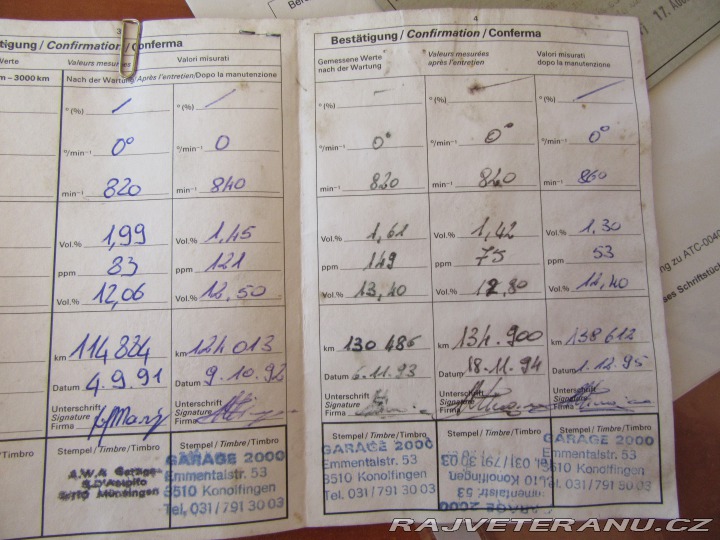 3
4
tigung / Confirmation / Conferma
Bestätigung / Confirmation / Conferma
Werte
Valeurs mesurées
Valori misurati
m – 3000 km
Nach der Wartung / Après l'entretien / Dopo la manutenzione
Gemessene Werte
nach der Wartung
Valeurs mesurées
après l'entretien
Valori misurati
dopo la manutenzione
° (%)
° (%)
° (%)
°/min⁻¹ 0°
°/min⁻¹ 0
°/min⁻¹ 0°
0°
0°
min⁻¹ 820
min⁻¹ 840
min⁻¹ 820
840
860
Vol.% 1,99
Vol.% 1,45
Vol.% 1,61
1,42
1,30
ppm 83
ppm 121
ppm 149
75
53
Vol.% 12,06
Vol.% 12,50
Vol.% 13,40
12,80
12,40
km 114834
km 124013
km 130486
134.900
138612
Datum 4.9.91
Datum 9.10.92
Datum 6.11.93
18.11.94
1.12.95
Unterschrift
Signature
Firma
Unterschrift
Signature
Firma
Unterschrift
Signature
Firma
Stempel / Timbre / Timbro
Stempel / Timbre / Timbro
Stempel / Timbre / Timbro
Stempel / Timbre / Timbro
Stempel / Timbre / Timbro
A.W.A Garage
3110 Münsingen
GARAGE 2000
Emmentalstr. 53
3510 Konolfingen
Tel. 031 / 791 30 03
GARAGE 2000
Emmentalstr. 53
3510 Konolfingen
Tel. 031 / 791 30 03
Tel. 031 / 791 30 03
Emmentalstr. 53
GARAGE 2000
GARAGE 2000
Emmentalstr. 53
3510 Konolfingen
Tel. 031 / 791 30 03
Ber
17. Aug
ng zu ATC-0040
ses Schriftstück
RAJVETERANU.CZ